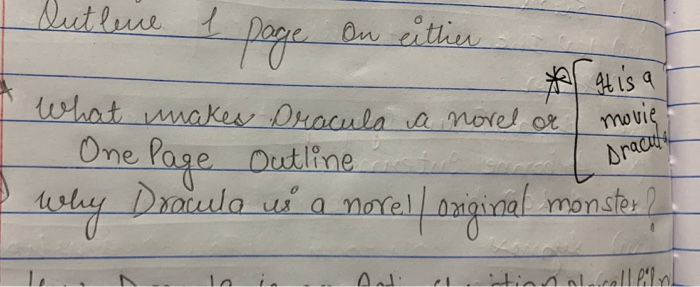 Outline 1 page on either
* what makes Dracula a novel or
One Page Outline
* [ It is a
movie
Dracula
why Dracula is a novel/original monster?